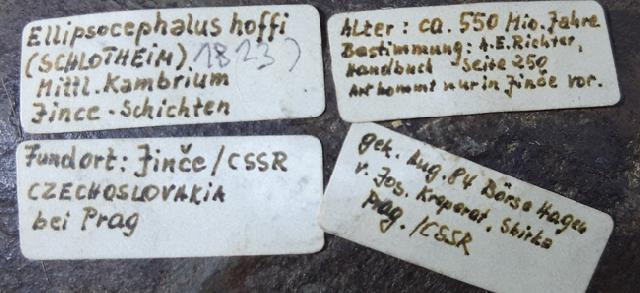 Ellipsocephalus hoffi
(SCHLOTHEIM) 1823)
Mittl. Kambrium
Jince-Schichten
Alter: ca. 550 Mio. Jahre
Bestimmung: A.E. Richter,
Handbuch Seite 250
Art kommt nur in Jinče vor.
Fundort: Jinče/CSSR
CZECHOSLOVAKIA
bei Prag
Aug. 84 Börse Hagen
v. Jos.
Prag. /CSSR